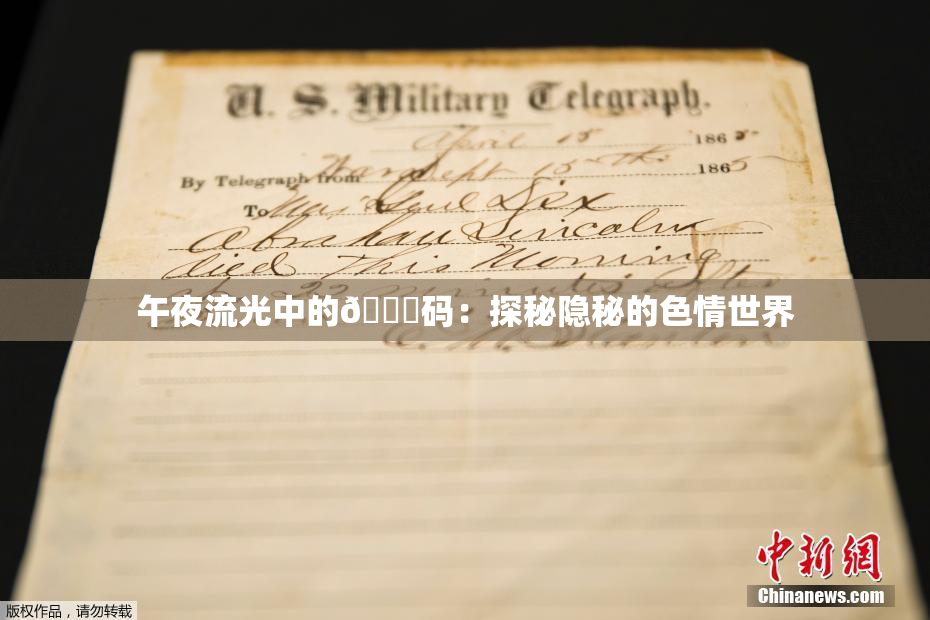 U. S. Military Telegraph.
April 15 1865
By Telegraph from War Dept 15th 1865
To Maj Genl Dix
Abraham Lincoln
died This Morning
at 22 minutes after
午夜流光中的ð码：探秘隐秘的色情世界
E. M. Stanton
中新网
Chinanews.com
版权作品，请勿转载